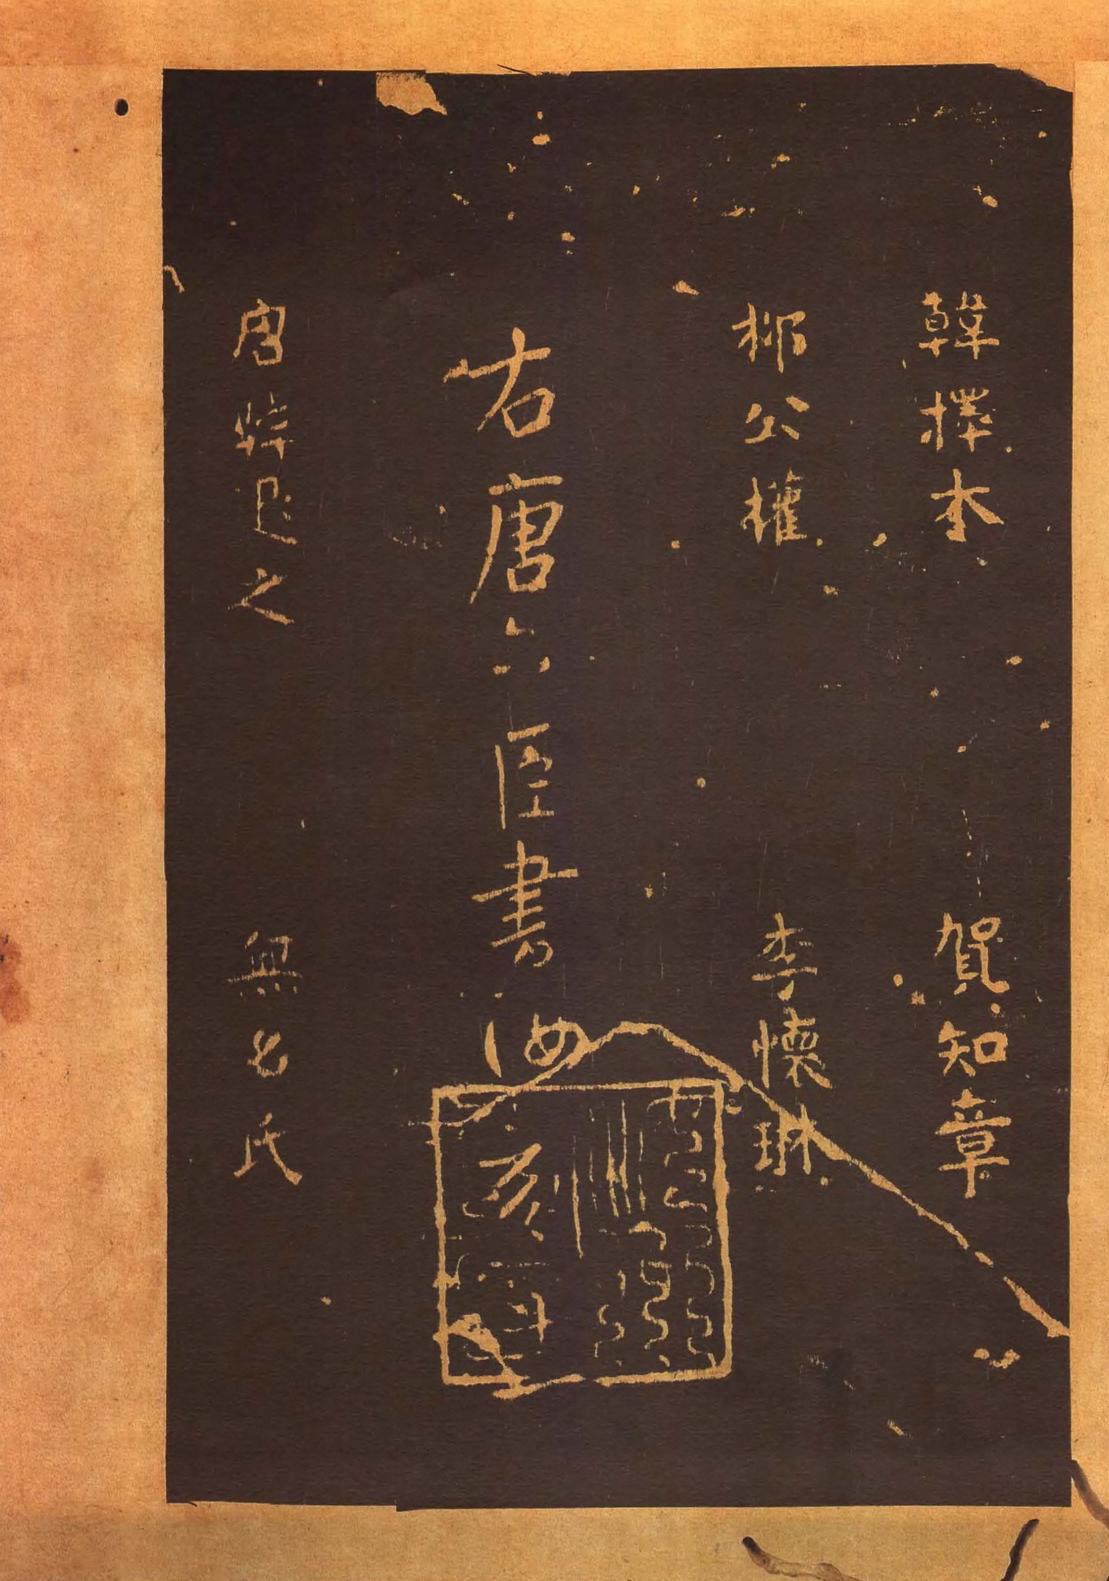 韓擇木
賀知章
柳公權
李懷琳
右唐六臣書
汝
唐韓退之
無名氏